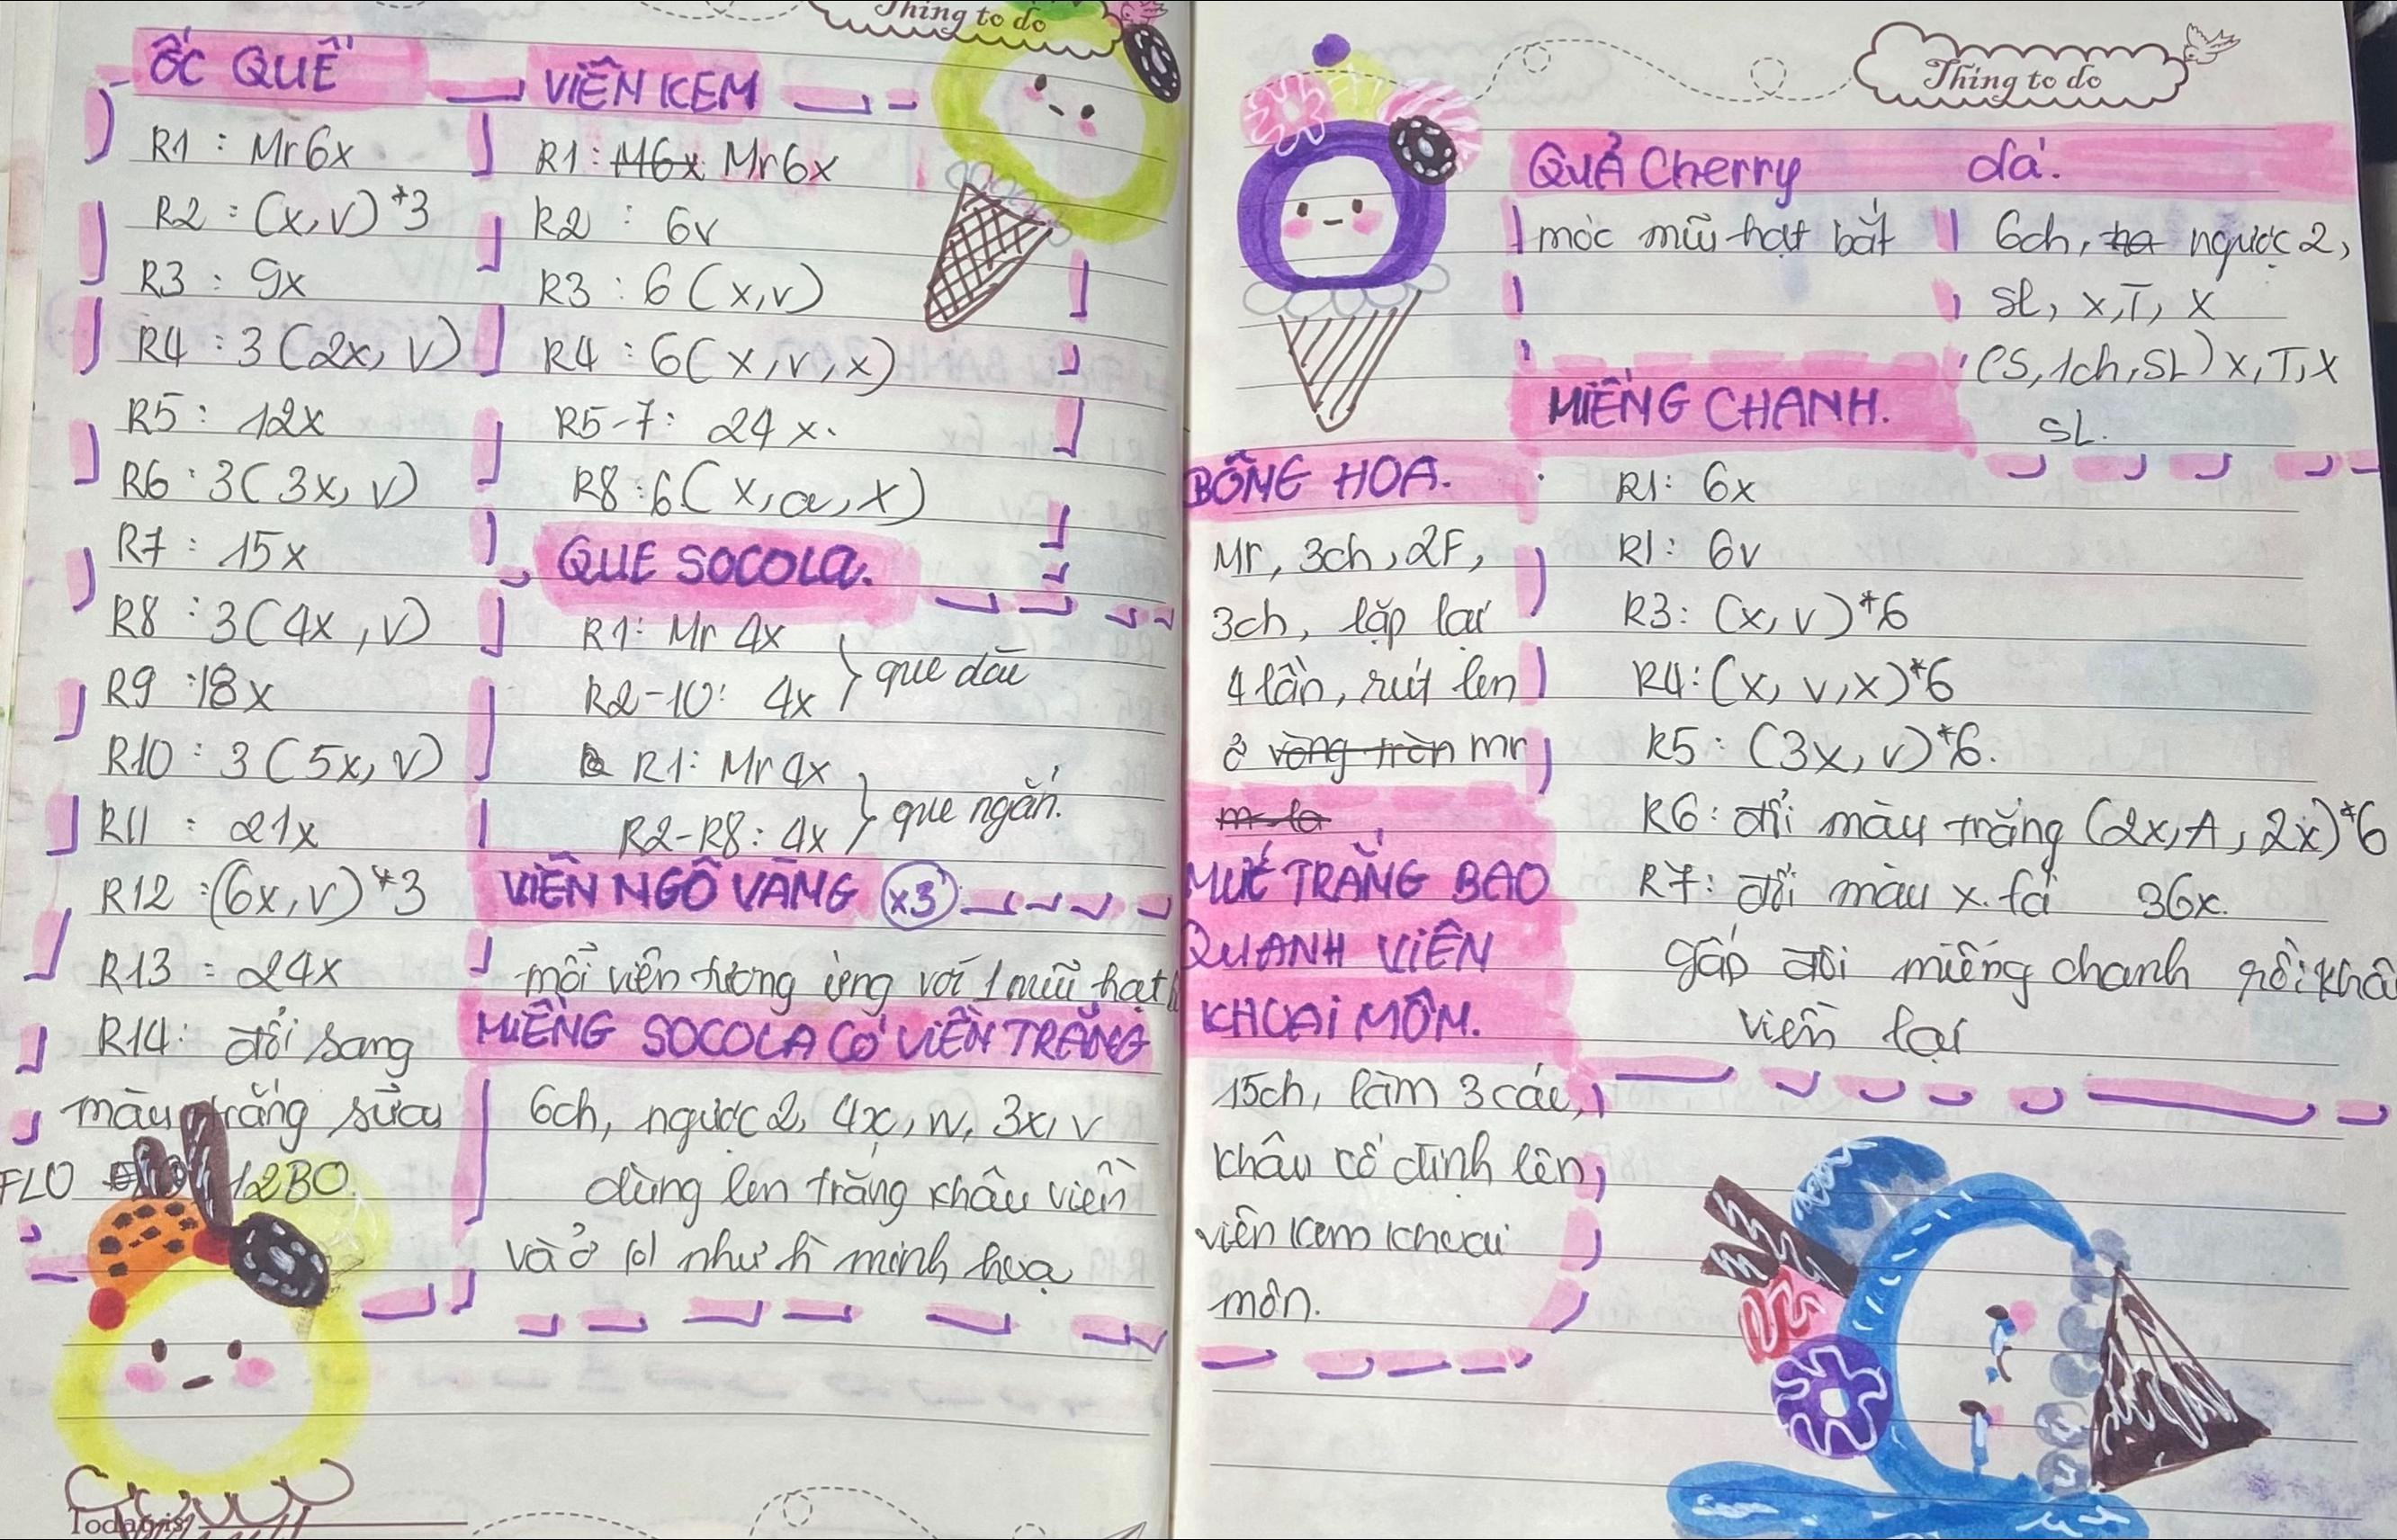 Thing to do
ỐC QUẾ
R1 : Mr6x
R2 : (x,v)*3
R3 : 9x
R4 : 3(2x, v)
R5 : 12x
R6 : 3(3x, v)
R7 : 15x
R8 : 3(4x, v)
R9 : 18x
R10 : 3(5x, v)
R11 : 21x
R12 : (6x, v)*3
R13 : 24x
R14: đổi sang
màu trắng sữa
FLO 12BO
Today is
VIÊN KEM
R1 : M6x Mr6x
R2 : 6v
R3 : 6(x,v)
R4 : 6(x,v,x)
R5-7: 24x.
R8 : 6(x,a,x)
QUE SOCOLA.
R1: Mr 4x
R2-10: 4x
que dài
R1: Mr 4x
R2-R8: 4x
que ngắn.
VIÊN NGÔ VÀNG x3
mỗi viên tương ứng với 1 mũi hạt
MIẾNG SOCOLA CÓ VIỀN TRẮNG
6ch, ngược 2, 4x, w, 3x, v
dùng len trắng khâu viền
và ở (o) như h minh hoạ
Thing to do
QUẢ Cherry
móc mũi hạt bắt
dá.
6ch, ngược 2,
SL, x, T, x
(S, 1ch, SL) x, T, x
SL.
BÔNG HOA.
Mr, 3ch, 2F,
3ch, lặp lại
4 lần, rút len
ở vòng tròn mr
MỨT TRẮNG BAO
QUANH VIÊN
KHOAI MÔN.
15ch, làm 3 cái,
khâu cố định lên
viên kem khoai
môn.
MIẾNG CHANH.
R1: 6x
R1: 6v
R3: (x, v)*6
R4: (x, v, x)*6
R5 : (3x, v)*6.
R6: đổi màu trắng (2x, A, 2x)*6
R7: đổi màu x. fa 36x.
gấp đôi miếng chanh rồi khâu
viền lại